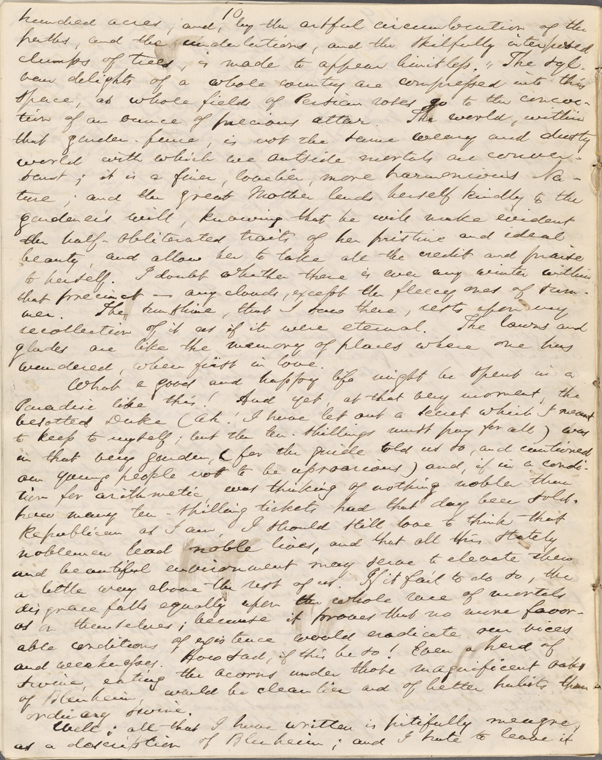 10
hundred acres, and, by the artful circumlocution of the
paths, and the undulations, and the skilfully interposed
clumps of trees, is made to appear limitless. The syl-
van delights of a whole country are compressed into this
space, as whole fields of Persian roses go to the concoc-
tion of an ounce of precious attar. The world, within
that garden-fence, is not the same weary and dusty
world with which we outside mortals are conver-
sant; it is a finer, lovelier, more harmonious Na-
ture; and the Great Mother lends herself kindly to the
gardener's will, knowing that he will make evident
the half-obliterated traits of her pristine and ideal
beauty, and allow her to take all the credit and praise
to herself. I doubt whether there is ever any winter within
that precinct — any clouds, except the fleecy ones of sum-
mer. The sunshine, that I saw there, rests upon my
recollection of it as if it were eternal. The lawns and
glades are like the memory of places where one has
wandered, when first in love.
What a good and happy life might be spent in a
Paradise like this! And yet, at that very moment, the
besotted Duke (ah. I have let out a secret which I meant
to keep to myself; but the ten shillings must pay for all) was
in that very garden, (for the guide told us so, and cautioned
our young people not to be uproarious) and, if in a condi-
tion for arithmetic, was thinking of nothing nobler than
how many ten-shilling tickets had that day been sold.
Republican as I am, I should still love to think that
noblemen lead noble lives, and that all this stately
and beautiful environment may serve to elevate them
a little way above the rest of us. If it fail to do so, the
disgrace falls equally upon the whole race of mortals
as on themselves; because it proves that no more favor-
able conditions of existence would eradicate our vices
and weaknesses. How sad, if this be so! Even a herd of
swine, eating the acorns under those magnificent oaks
of Blenheim, would be cleanlier and of better habits than
ordinary swine.
Well; all that I have written is pitifully meagre,
as a description of Blenheim; and I hate to leave it